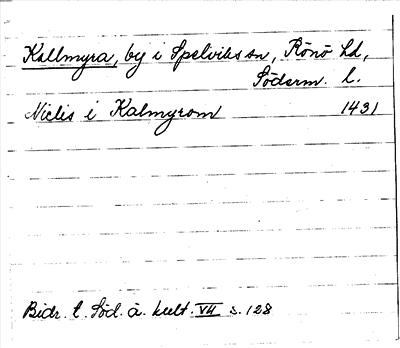 Kallmyra, by i Spelviks sn, Rönö hd,
Söderm. l.
Niclis i Kalmyrom 1431
Bidr. t. Söd. ä. kult. VII s. 128